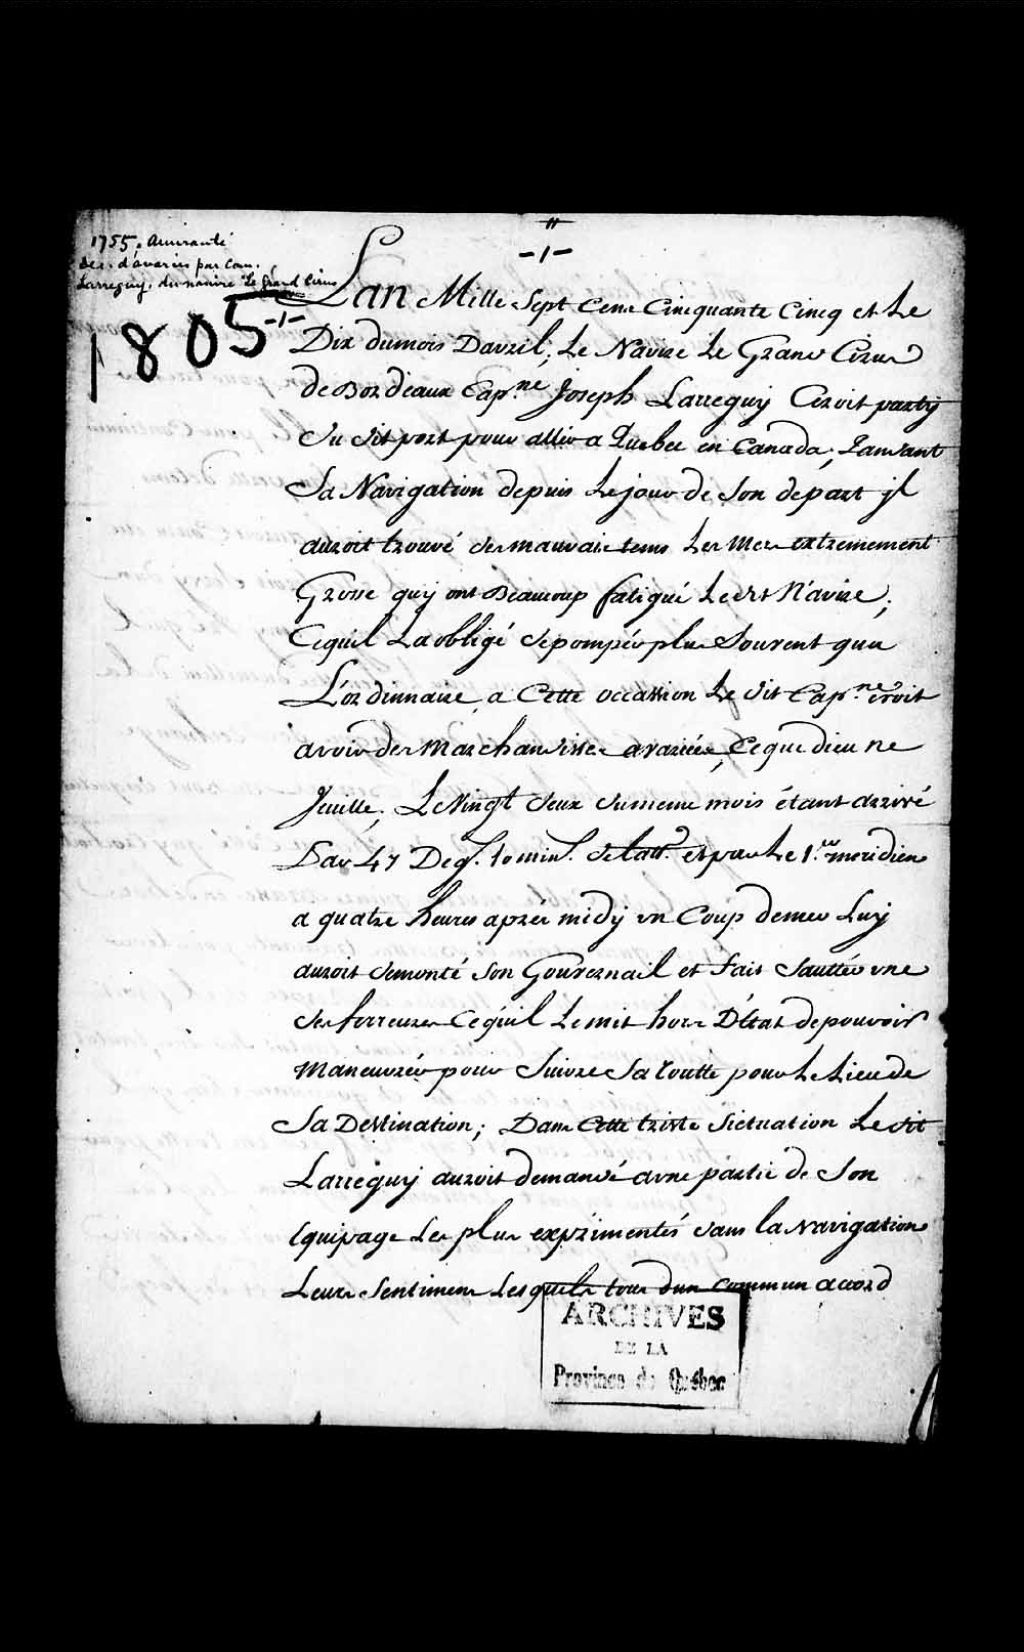 1755. Amirauté
Des. d'avaries par Cam.
Larreguy, du navire Le Grand Cirus
-1-
-1-
1805
Lan Mille Sept Cens Cinquante Cincq et Le
Dix dumois Davril, Le Navire Le Grand Cirus
de Bordeaux Cap.ne Joseph Larreguy Ceroit party
du dit port pour aller a Quebec en Canada; pandant
Sa Navigation depuis Le jour de Son depart jl
auroit trouvé des mauvais tems Les Mers extremement
Grosse quy ont Beaucoup fatigué Ledit Navire;
Cequil La obligé de pomper plus Souvent qua
L'ordinnaire, a Cette occassion Le dit Cap.ne croit
avoir des Marchandisses avariées, Ceque dieu ne
Veuille; Le Vingt deux dumeme mois étant arrivé
Par 47 Deg. 10 min. de latt. et par Le 1.er meridien
a quatre heures aprés midy un Coup demer Luy
auroit demonté Son Gouvernail et fait Sautter une
des ferreures Cequil Le mit hors D'État depouvoir
Maneuvrér pour Suivre Sa routte pour Le Lieu de
Sa Destination; Dans Cette triste Sictuation Le dit
Larreguy auroit demandé a une partie de Son
Equipage Les plus exprimentés dans la Navigation
Leurs Sentimens Lesquels tous dun Commun acord
ARCHIVES
DE LA
Province de Québec